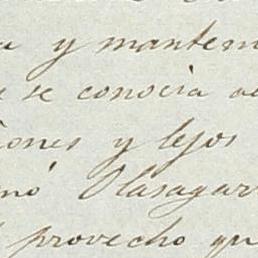 y mantem
se conocia
iones y lejos
Olasagar
provecho qu